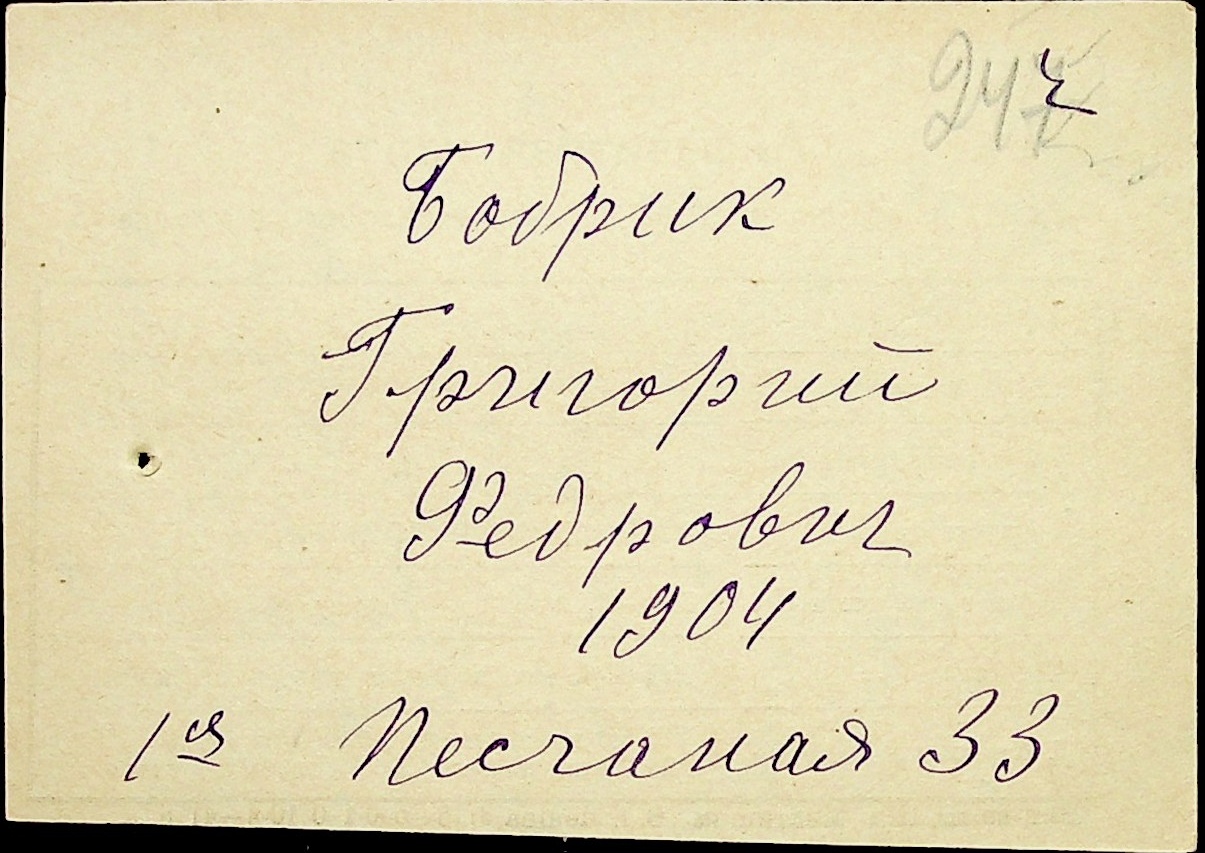 247 ч
Бобрик
Григорий
Федрович
1904
1ая Песчаная 33